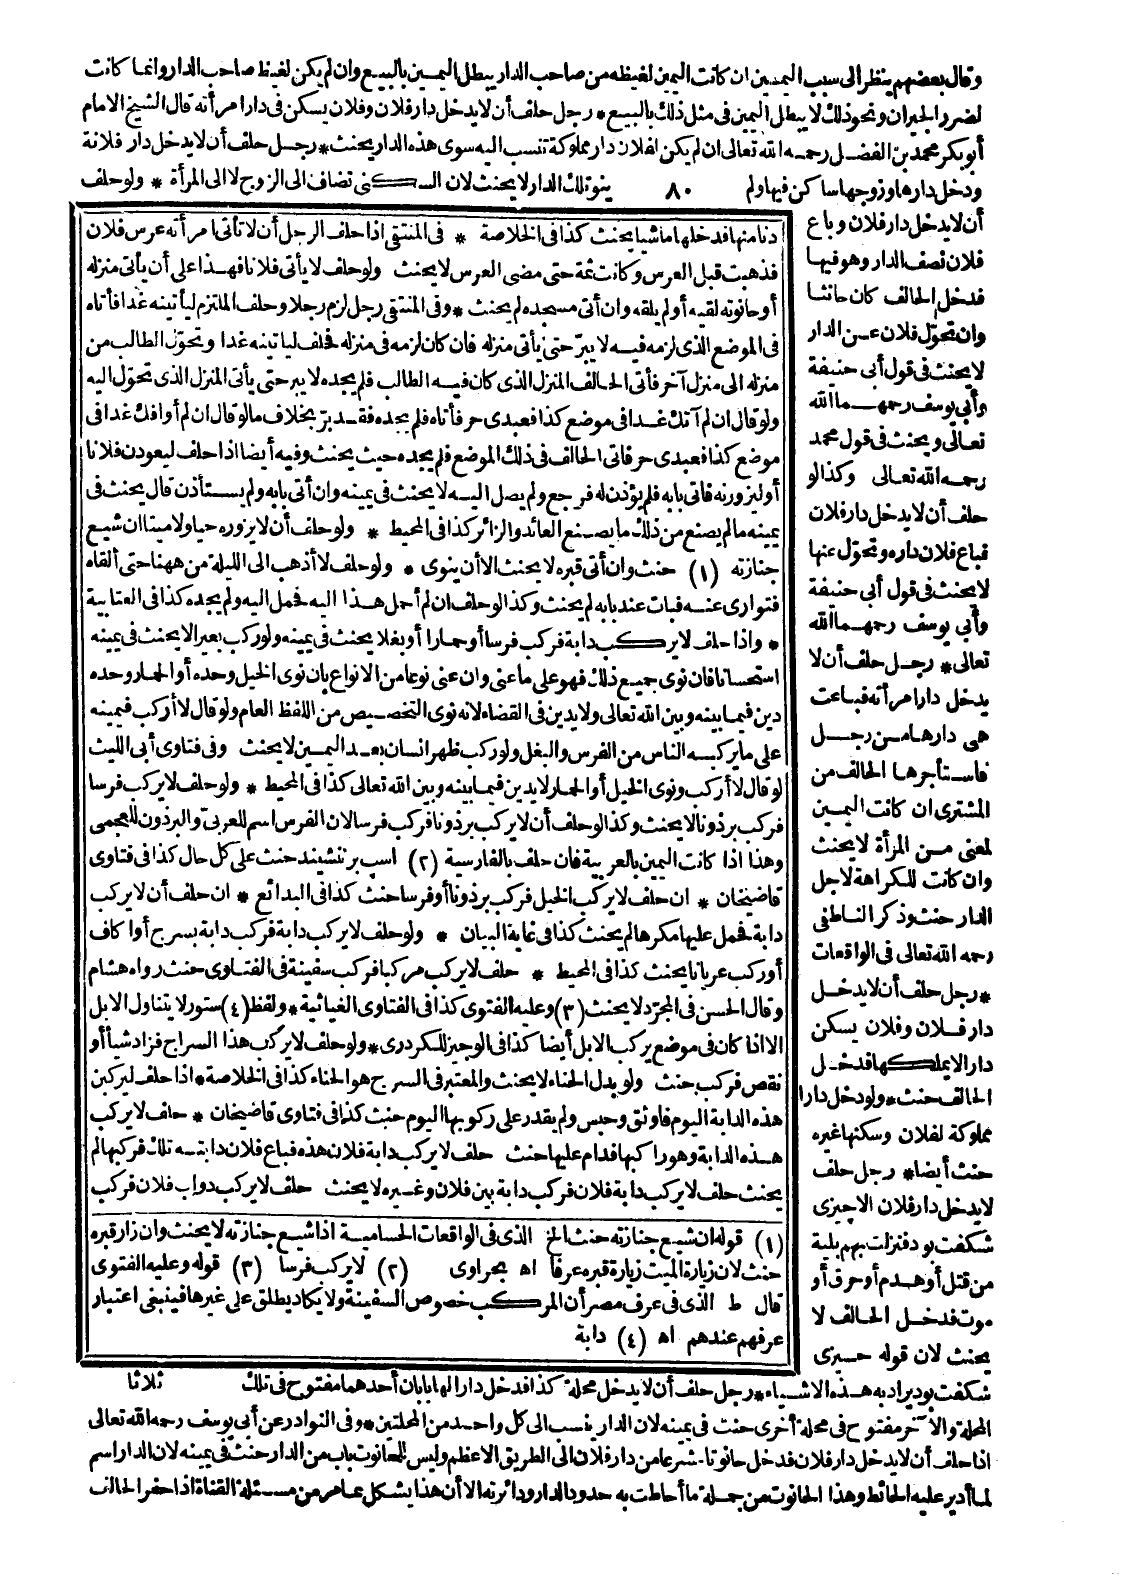 وقال بعضهم ينظر الى سبب اليمين ان كانت اليمين لغيظه من صاحب الدار يبطل اليمين بالبيع وان لم يكن لغيظ صاحب الدار وانما كانت
لضرر الجيران ونحو ذلك لا يبطل اليمين فى مثل ذلك بالبيع * رجل حلف أن لا يدخل دار فلان وفلان يسكن فى دار امرأته قال الشيخ الامام
أبو بكر محمد بن الفضل رحمه الله تعالى ان لم يكن لفلان دار مملوكة تنسب اليه سوى هذه الدار يحنث * رجل حلف أن لا يدخل دار فلانة
ودخل دارها وزوجها ساكن فيها ولم ٨٠ ينو تلك الدار لا يحنث لان السكنى تضاف الى الزوج لا الى المرأة * ولو حلف
أن لا يدخل دار فلان وباع
فلان نصف الدار وهو فيها
فدخل الحالف كان حانثا
وان تحوّل فلان عن الدار
لا يحنث فى قول أبى حنيفة
وأبى يوسف رحمهما الله
تعالى ويحنث فى قول محمد
رحمه الله تعالى وكذا لو
حلف أن لا يدخل دار فلان
فباع فلان داره وتحوّل عنها
لا يحنث فى قول أبى حنيفة
وأبى يوسف رحمهما الله
تعالى * رجل حلف أن لا
يدخل دار امرأته فباعت
هى دارها من رجل
فاستأجرها الحالف من
المشترى ان كانت اليمين
لمعنى من المرأة لا يحنث
وان كانت للكراهة لاجل
الدار حنث وذكر الناطفى
رحمه الله تعالى فى الواقعات
* رجل حلف أن لا يدخل
دار فلان وفلان يسكن
دارا لا يملكها فدخل
الحالف حنث * ولو دخل دارا
مملوكة لفلان وسكنها غيره
حنث أيضا * رجل حلف
لا يدخل دار فلان الا جيزى
شكفت بود فنزلت بهم بلية
من قتل أو هدم أو حرق أو
موت فدخل الحالف لا
يحنث لان قوله جيزى
دنا منها فدخلها ماشيا يحنث كذا فى الخلاصة * فى المنتقى اذا حلف الرجل أن لا تأتى امرأته عرس فلان
فذهبت قبل العرس وكانت ثمة حتى مضى العرس لا يحنث ولو حلف لا يأتى فلانا فهذا على أن يأتى منزله
أو حانوته لقيه أو لم يلقه وان أتى مسجده لم يحنث * وفى المنتقى رجل لزم رجلا وحلف الملتزم ليأتينه غدا فأتاه
فى الموضع الذى لزمه فيه لا يبرّ حتى يأتى منزله فان كان لزمه فى منزله فحلف ليأتينه غدا وتحوّل الطالب من
منزله الى منزل آخر فأتى الحالف المنزل الذى كان فيه الطالب فلم يجده لا يبر حتى يأتى المنزل الذى تحوّل اليه
ولو قال ان لم آتك غدا فى موضع كذا فعبدى حر فأتاه فلم يجده فقد برّ بخلاف ما لو قال ان لم أوافك غدا فى
موضع كذا فعبدى حر فاتى الحالف فى ذلك الموضع فلم يجده حيث يحنث وفيه أيضا اذا حلف ليعودن فلانا
أو ليزورنه فاتى بابه فلم يؤذن له فرجع ولم يصل اليه لا يحنث فى يمينه وان أتى بابه ولم يستأذن قال يحنث فى
يمينه ما لم يصنع من ذلك ما يصنع العائد والزائر كذا فى المحيط * ولو حلف أن لا يزوره حيا ولا ميتا ان شيع
جنازته (١) حنث وان أتى قبره لا يحنث الا أن ينوى * ولو حلف لا أذهب الى الليلة من ههنا حتى ألقاه
فتوارى عنه فبات عند بابه لم يحنث وكذا لو حلف ان لم أحمل هذا اليه فحمل اليه ولم يجده كذا فى العتابية
* واذا حلف لا يركب دابة فركب فرسا أو حمارا أو بغلا يحنث فى يمينه ولو ركب بعيرا لا يحنث فى يمينه
استحسانا فان نوى جميع ذلك فهو على ما عنى وان عنى نوعا من الانواع بان نوى الخيل وحده أو الحمار وحده
دين فيما بينه وبين الله تعالى ولا يدين فى القضاء لانه نوى التخصيص من اللفظ العام ولو قال لا أركب فيمينه
على ما يركبه الناس من الفرس والبغل ولو ركب ظهر انسان بعد اليمين لا يحنث وفى فتاوى أبى الليث
لو قال لا أركب ونوى الخيل أو الحمار لا يدين فيما بينه وبين الله تعالى كذا فى المحيط * ولو حلف لا يركب فرسا
فركب برذونا لا يحنث وكذا لو حلف أن لا يركب برذونا فركب فرسا لان الفرس اسم للعربى والبرذون للعجمى
وهذا اذا كانت اليمين بالعربية فان حلف بالفارسية (٢) اسب بر ننشيند حنث على كل حال كذا فى فتاوى
قاضيخان * ان حلف لا يركب الخيل فركب برذونا أو فرسا حنث كذا فى البدائع * ان حلف أن لا يركب
دابة فحمل عليها مكرها لم يحنث كذا فى غاية البيان * ولو حلف لا يركب دابة فركب دابة بسرج أو اكاف
أو ركب عريانا يحنث كذا فى المحيط * حلف لا يركب مركبا فركب سفينة فى الفتاوى حنث رواه هشام
وقال الحسن فى المجرّد لا يحنث (٣) وعليه الفتوى كذا فى الفتاوى الغياثية * ولفظ (٤) ستور لا يتناول الابل
الا اذا كان فى موضع يركب الابل أيضا كذا فى الوجيز للكردرى * ولو حلف لا يركب هذا السراج فزاد شيأ أو
نقص فركب حنث ولو بدل الحناء لا يحنث والمعتبر فى السرج هو الحناء كذا فى الخلاصة * اذا حلف ليركبن
هذه الدابة اليوم فاوثق وحبس ولم يقدر على ركوبها اليوم حنث كذا فى فتاوى قاضيخان * حلف لا يركب
هذه الدابة وهو راكبها فدام عليها حنث حلف لا يركب دابة فلان هذه فباع فلان دابته تلك فركبها لم
يحنث حلف لا يركب دابة فلان فركب دابة بين فلان وغيره لا يحنث حلف لا يركب دواب فلان فركب
(١) قوله ان شيع جنازته حنث الخ الذى فى الواقعات الحسامية اذا شيع جنازته لا يحنث وان زار قبره
حنث لان زيارة الميت زيارة قبره عرفا اه بحراوى (٢) لا يركب فرسا (٣) قوله وعليه الفتوى
قال ط الذى فى عرف مصر أن المركب خصوص السفينة ولا يكاد يطلق على غيرها فينبغى اعتبار
عرفهم عندهم اه (٤) دابة
شكفت بود يراد به هذه الاشياء * رجل حلف أن لا يدخل محلة كذا فدخل دارا لها بابان أحدهما مفتوح فى تلك ثلاثا
المحلة والآخر مفتوح فى محلة أخرى حنث فى يمينه لان الدار ينسب الى كل واحد من المحلتين * وفى النوادر عن أبى يوسف رحمه الله تعالى
اذا حلف أن لا يدخل دار فلان فدخل حانوتا شرعا من دار فلان الى الطريق الاعظم وليس للحانوت باب من الدار حنث فى يمينه لان الدار اسم
لما أدير عليه الحائط وهذا الحانوت من جملة ما أحاطت به حدود الدار ودائرته الا أن هذا يشكل عامر من مسئلة القناة اذا حفر الحالف